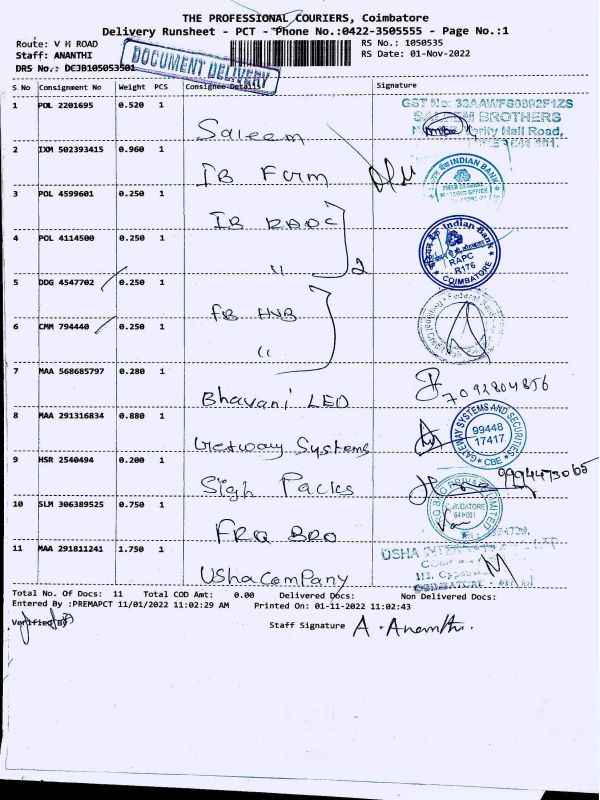 THE PROFESSIONAL COURIERS, Coimbatore
Delivery Runsheet - PCT - Phone No.:0422-3505555 - Page No.:1
Route: V H ROAD
RS No.: 1050535
Staff: ANANTHI
RS Date: 01-Nov-2022
DRS No.: DCJB105053501
DOCUMENT DELIVERY
S No Consignment No Weight PCS Consignee Details Signature
1 POL 2201695 0.520 1 Saleem
GST No: 33AAWFS0892F1ZS
SALEEM BROTHERS
Hall Road,
2 IXM 502393415 0.960 1 IB Firm
INDIAN BANK
3 POL 4599601 0.250 1 IB RAPC
4 POL 4114500 0.250 1 " 2
Indian Bank
RAPC
B176
COIMBATORE
5 DDG 4547702 0.250 1 FB HNB
Federal
6 CMM 794440 0.250 1 "
7 MAA 568685797 0.280 1 Bhavani LED
7092804856
8 MAA 291316834 0.880 1 Getway Systems
GATEWAY SYSTEMS AND SECURITIES
99448
17417
CBE
9 HSR 2540494 0.200 1 Sigh Packs
9994473065
10 SLM 306389525 0.750 1 FRQ BRO
LIMITED
COIMBATORE
641-001
11 MAA 291811241 1.750 1 Usha Company
USHA
COIMBATORE
Total No. Of Docs: 11 Total COD Amt: 0.00 Delivered Docs: Non Delivered Docs:
Entered By :PREMAPCT 11/01/2022 11:02:29 AM Printed On: 01-11-2022 11:02:43
Verified By
Staff Signature A. Ananthi.